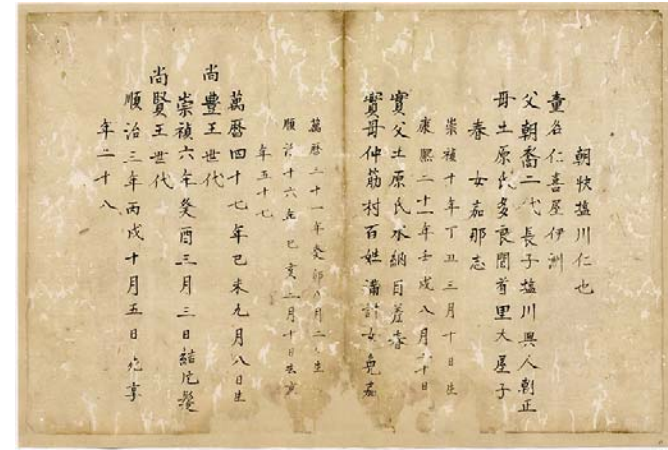 朝狀塩川仁也
童名仁喜屋伊洲
父朝喬二代長子塩川與人朝正
母土原氏多良間首里大屋子
春女嘉那志
崇禎十年丁丑三月十日生
康熙二十一年壬戌八月二十日
實父土原氏水納目差春
實母仲筋村百姓滿計女免嘉
萬曆三十一年癸卯八月二日生
順治十六年己亥二月十日
年五十七
萬曆四十七年己未九月八日生
尚豊王世代
崇禎六年癸酉三月三日結片髮
尚賢王世代
順治三年丙戌十月五日死享
年二十八